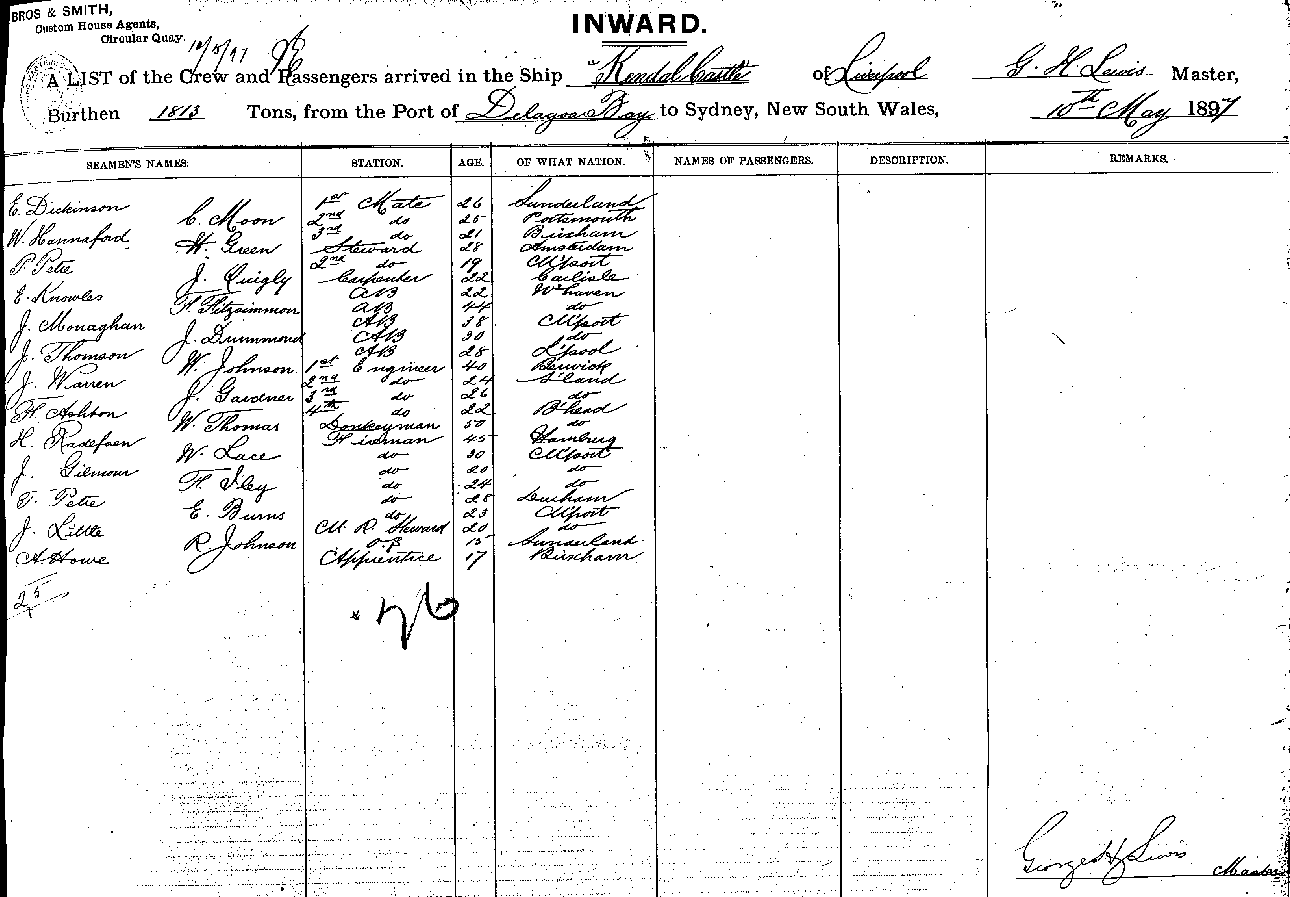 BROS & SMITH,
Custom House Agents,
Circular Quay.
10/5/97
INWARD.
A LIST of the Crew and Passengers arrived in the Ship "Kendal Castle of Liverpool G. H Lewis Master,
Burthen 1813 Tons, from the Port of Delagoa Bay to Sydney, New South Wales, 10th May 1897
SEAMEN'S NAMES. STATION. AGE. OF WHAT NATION. NAMES OF PASSENGERS. DESCRIPTION. REMARKS.
E. Dickinson 1st Mate 26 Sunderland
C. Moon 2nd do 25 Portsmouth
W. Hannaford 3rd do 21 Brixham
H. Green Steward 28 Amsterdam
P. Petre 2nd do 19 M'port
J. Quigly Carpenter 22 Carlisle
E. Knowles AB 22 W'haven
F. Fitzsimmon AB 44 do
J. Monaghan AB 38 M'port
J. Drummond AB 30 do
J. Thomson AB 28 L'pool
W. Johnson 1st Engineer 40 Berwick
J. Warren 2nd do 24 S'land
J. Gardner 3rd do 26 do
F. Ashton 4th do 22 B'head
W. Thomas Donkeyman 50 do
H. Fireman 45 Hamburg
W. Lace do 30 M'port
J. Gilmour do 20 do
F. Sley do 24 do
T. Petre do 28 Durham
E. Burns do 23 M'port
J. Little M. R. Steward 20 do
R Johnson O.S 15 Sunderland
A. Howe Apprentice 17 Brixham
25
George H Lewis Master